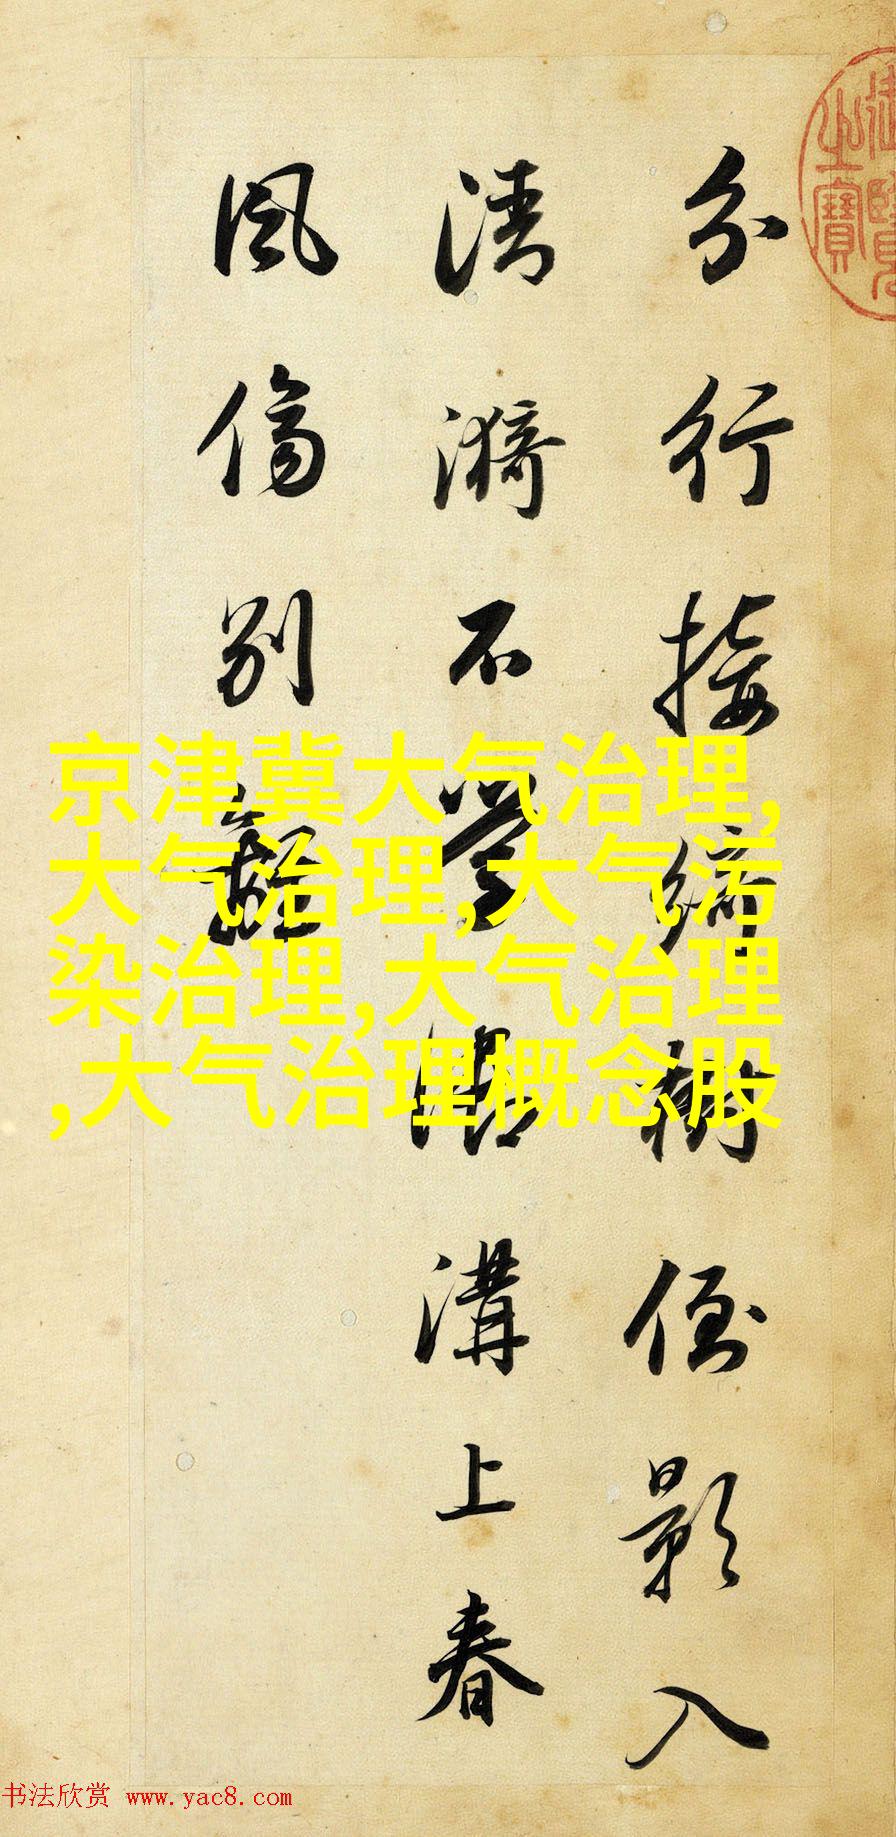 分行接綺樹倒影入
清漪不學御溝上春
風傷別離
御覽之寶
京津冀大气治理,
大气治理,大气污
染治理,大气治理
,大气治理概念股
书法欣赏 www.yac8.com